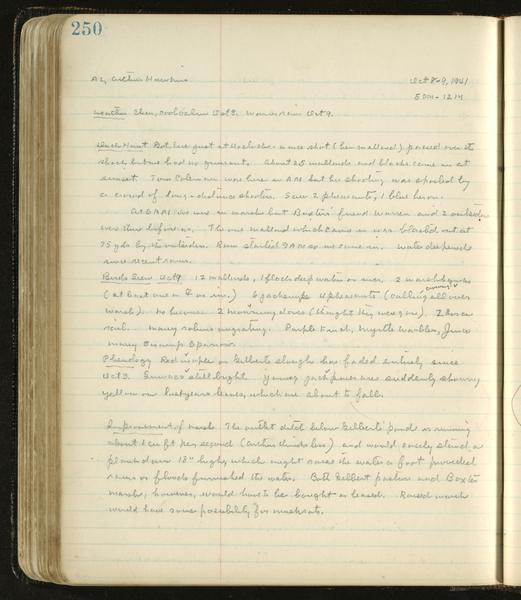 250
AL, Arthur Hawkins Oct 8-9, 1941
5 PM - 12 M
Weather Clear, cool before Oct 8. Warm rain Oct 9.
Duck Hunt Got here just at 4 o'clock. A nice shot (hen mallard) passed over the
shack but we had no guns out. About 25 mallards and blacks came in at
sunset. Tom Coleman was here in AM but his shooting was spoiled by
a crowd of long-distance shooters. Saw 2 pheasants, 1 blue heron.
At 6 AM we were in marsh but Baxters' friend Warren and 2 outsiders
were there before us. The one mallard which came in was blasted out at
75 yds by the outsiders. Rain started 9 AM so we came in. Water deepened
since recent rains.
Birds Seen Oct 9. 12 mallards, 1 flock deep water on river. 2 marsh hawks
(at least one a ♀ or im.) 6 jacksnipe 4 pheasants (calling all over
marsh). No herons. 2 mourning doves (thought they were gone). 2 sora
rail. Many robins migrating. Purple finch, myrtle warbler, Junco
many swamp sparrow.
Phenology Red maples on Gilberts slough has faded entirely since
Oct 3. Sumacs still bright. Young jack pines are suddenly showing
yellow on last years leaves, which are about to fall.
Improvement of marsh The outlet ditch below Gilberts' pond is running
about 1 cu ft per second (Arthur thinks less) and would easily stand a
plank dam 18" high, which might raise the water a foot provided
rains or floods furnished the water. Both Gilbert pasture and Baxter
marsh, however, would have to be bought or leased. Raised marsh
would have some possibility for muskrats.